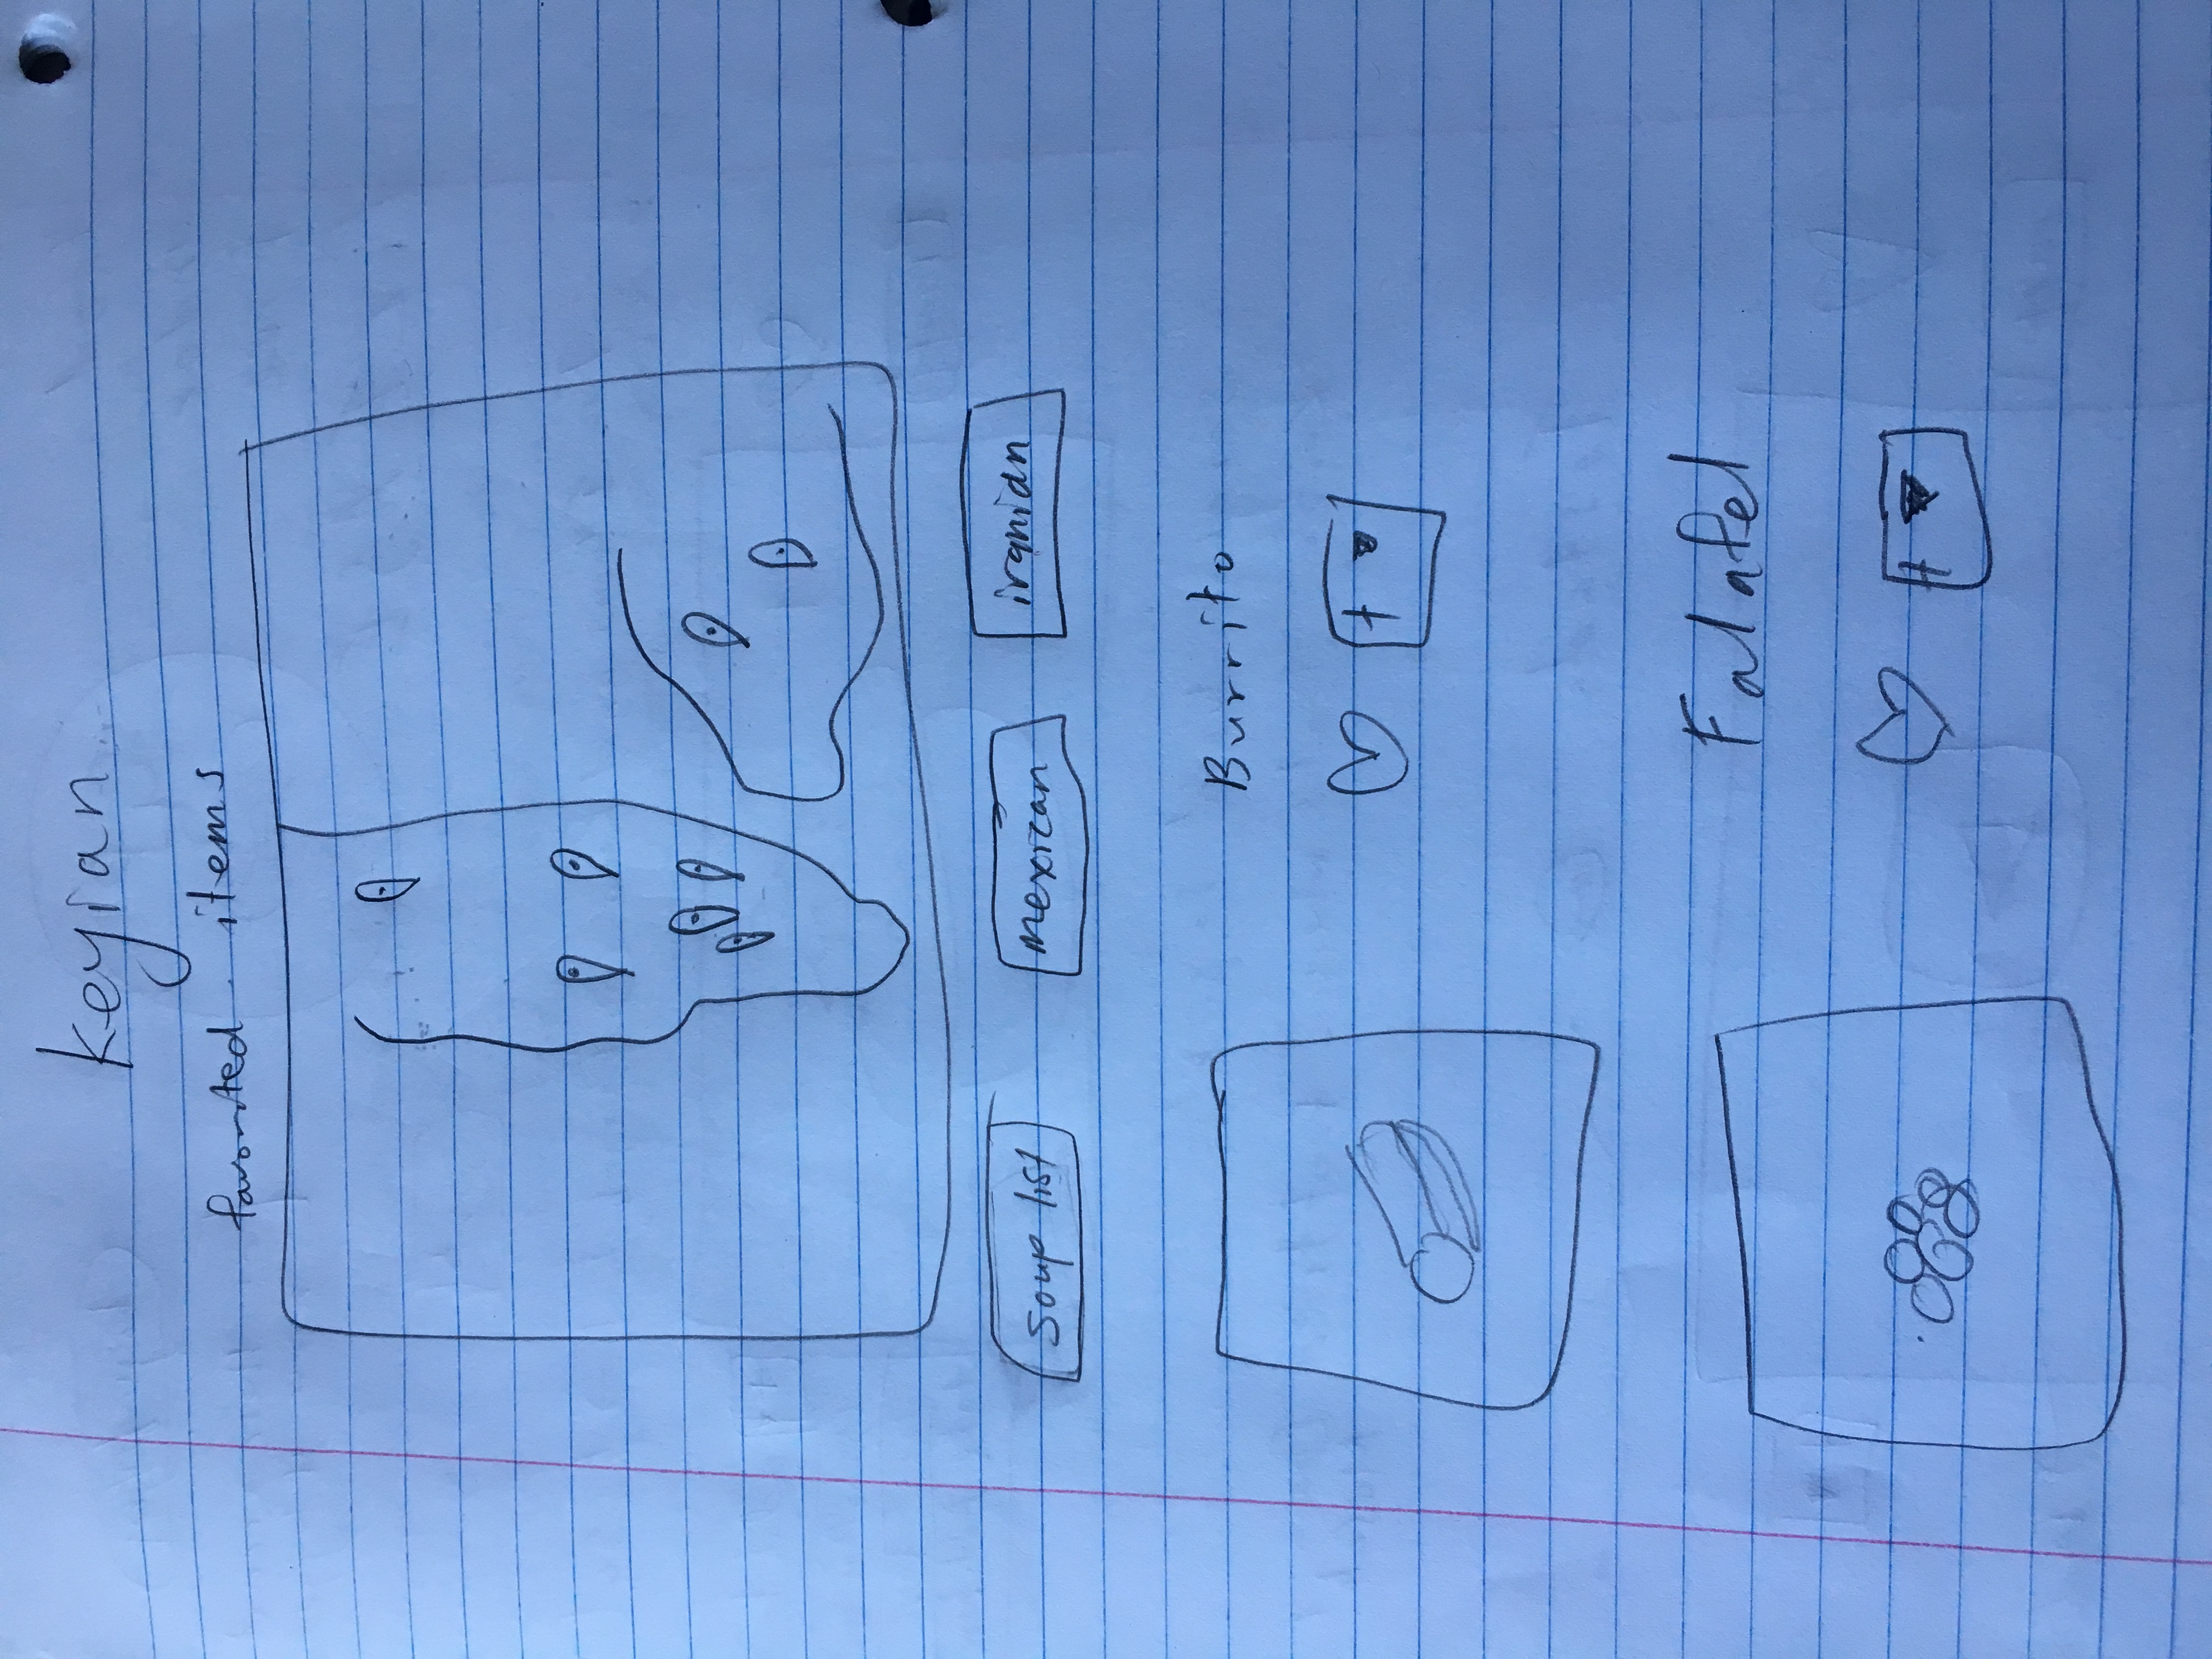 Keyian
favorited items
soup list
mexican
iranian
Burrito
+
Falafel
+